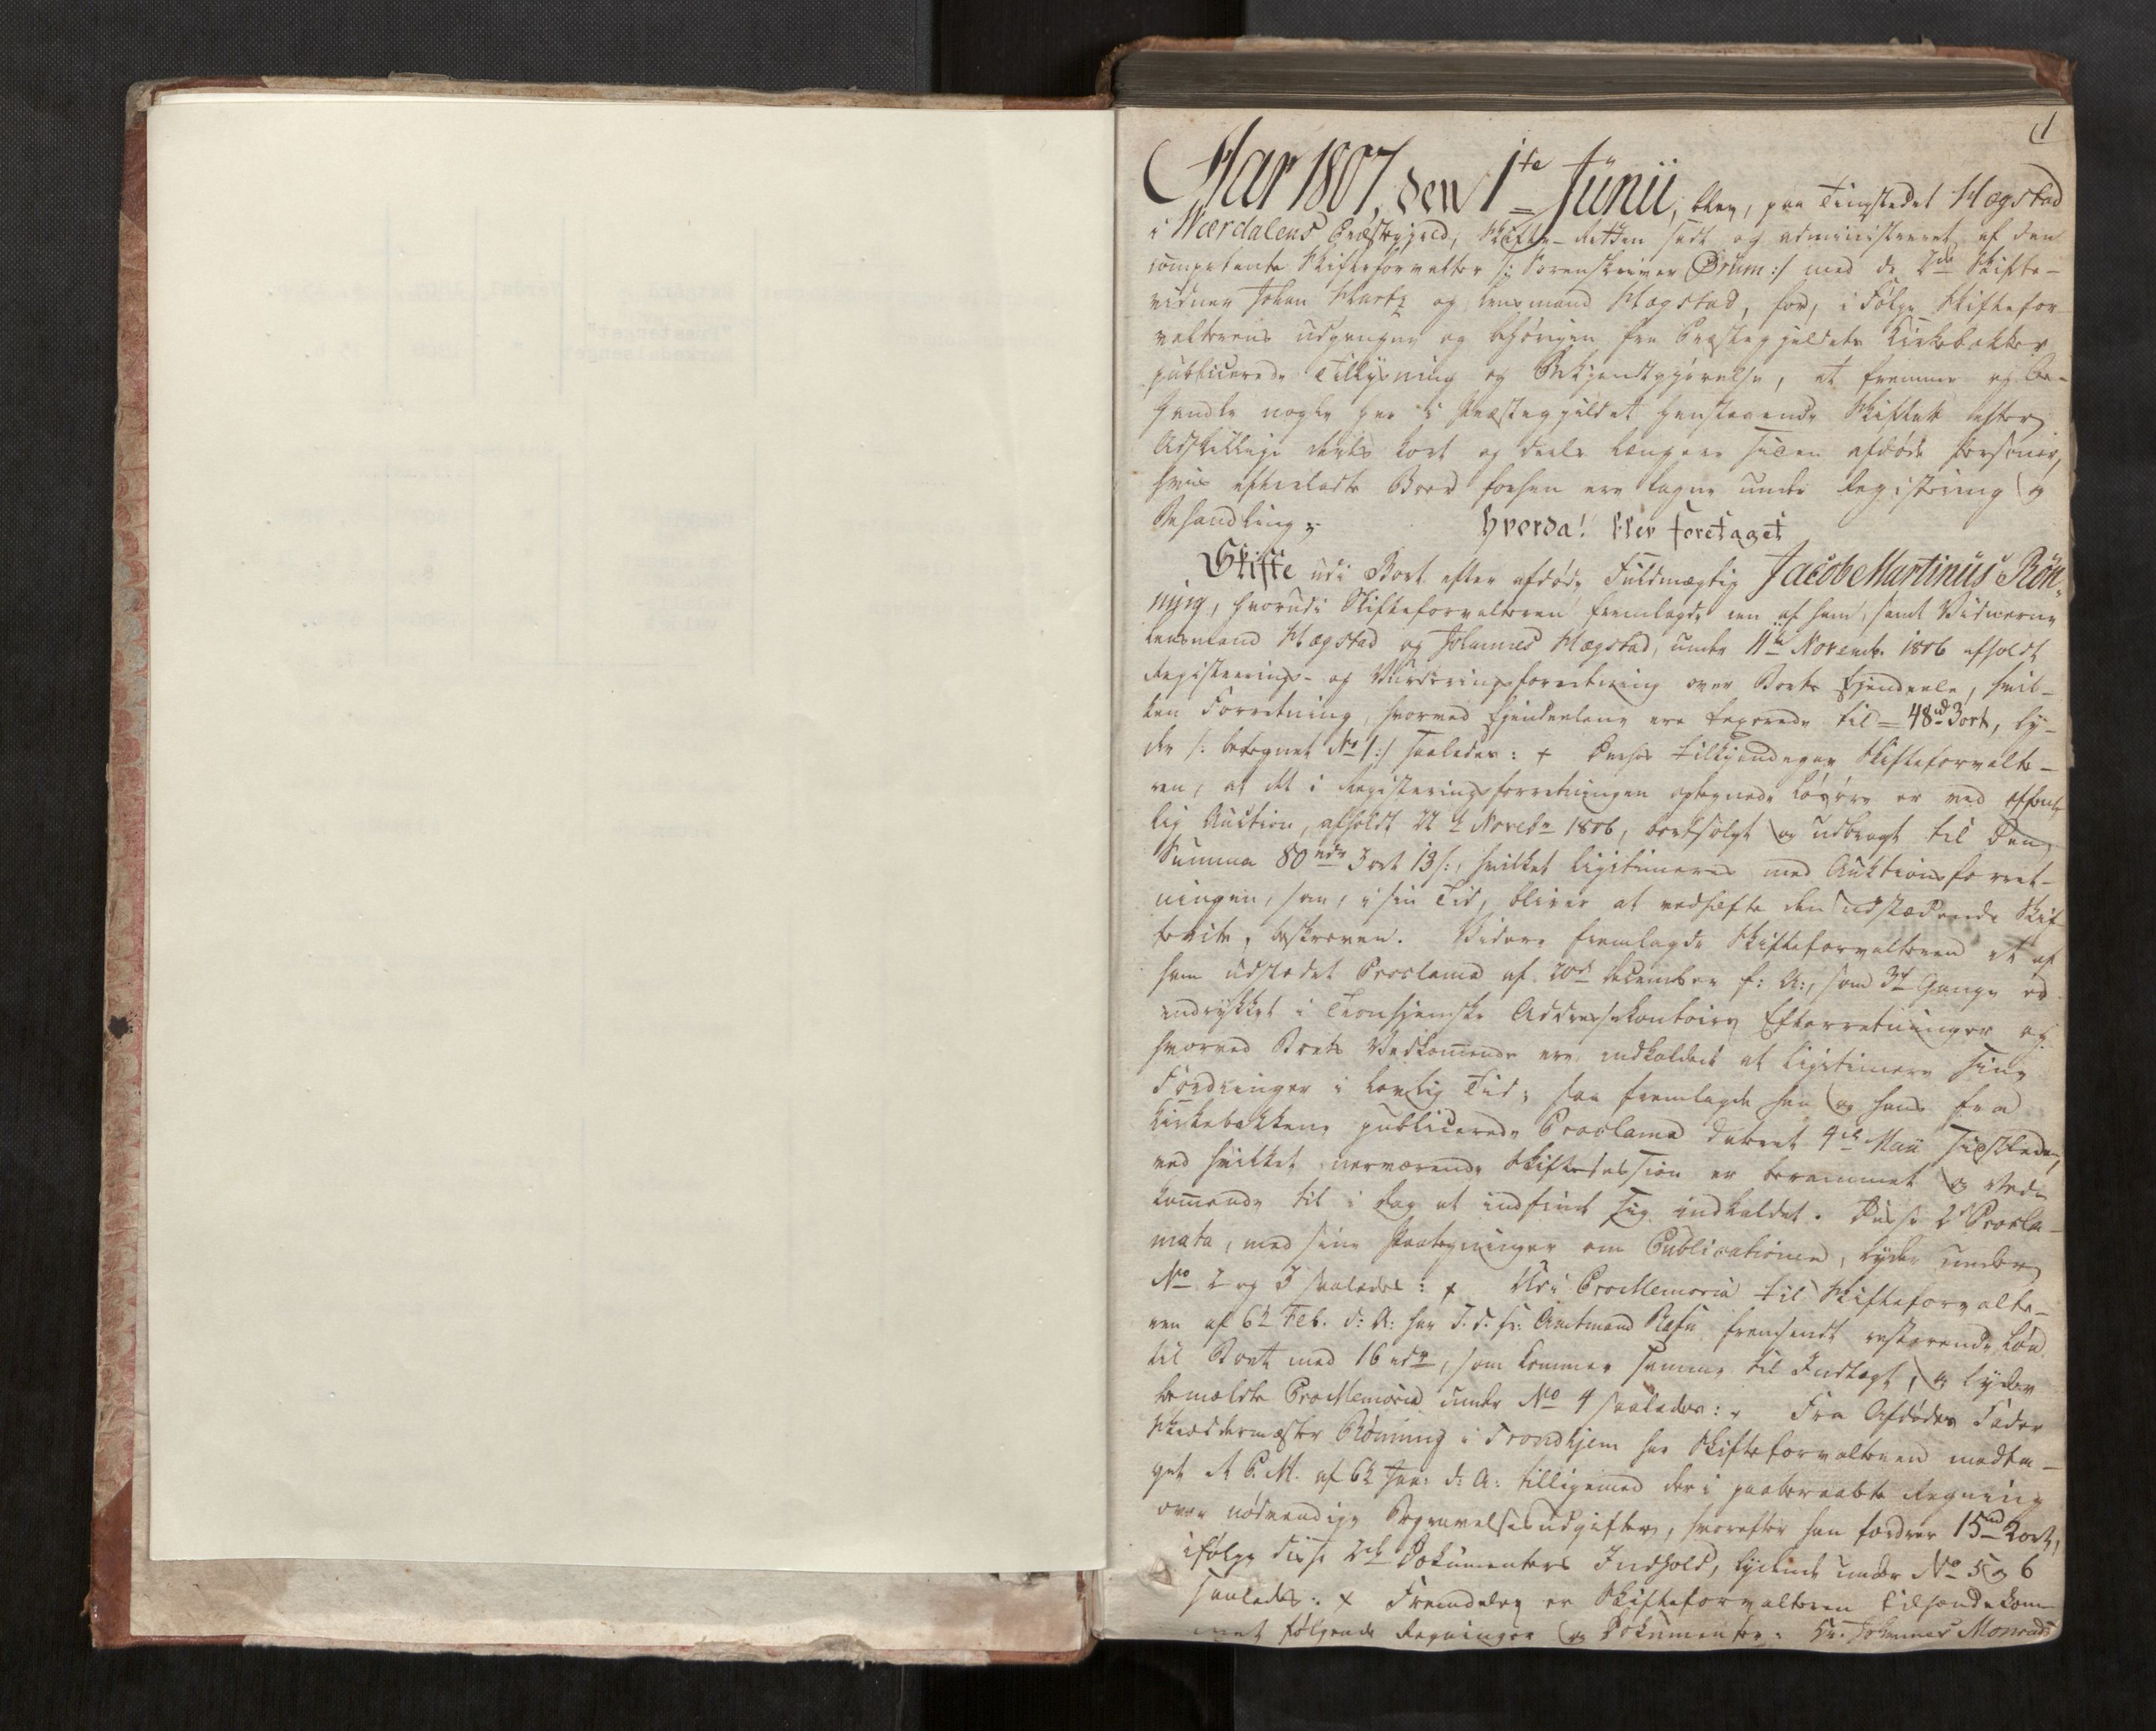 1
Aar 1807, den 1te Junii, blev, paa Tingstedet Hægstad
i Wærdalens Præstegjeld, Skifte-Retten sadt og administreret af den
competente Skifteforvalter /: Sorenskriver Ørum :/ med de 2de Skifte-
vidner Johan Hartz og Lensmand Hægstad, for, i Følge Skiftefor
valterens udgangne og behörigen fra Præstegjeldets Kirkebakker
publicerede Tillysning og Bekjendtgjörelse, at fremme og be-
handle nogle her i Præstegjeldet henstaaende Skifter efter
Adskillige deels kort og deels længere siden afdøde Personer,
hvis efterladte Boer forhen ere tagne under Registering og
Behandling;
Hvorda! blev foretaget
Skifte udi Boet efter afdøde Fuldmægtig Jacob Martinus Rön-
ning, hvorudi Skifteforvalteren fremlagde en af ham, samt Vidnerne
Lensmand Hægstad og Johannes Hægstad, under 11te Novembr. 1806 afholdt
Registerings- og Vurderingsforretning over Boets Ejendeele, hvil-
ken Forretning, hvorved Ejendeelene ere taxerede til = 48rd 3ort, ly-
der /: betegnet No 1 :/ saaledes: + Derhos tilkjendegav Skifteforvalte-
ren, at det i Registeringsforretningen optegnede Løsøre er ved offent-
lig Auction, afholdt 22de Novebr 1806, bortsolgt og udbragt til den
Summa 80rdr 3ort 13 s:, hvilket legitimeres med Auktionsforret-
ningen, som, i sin Tid, bliver at vedhefte den udstædende Skif-
tebrev, beskreven. Videre fremlagde Skifteforvalteren et af
ham udstedet Proclama af 20de December f: A:, som 3de Gange er
indrykket i Tronhjemske Addressekontoirs Efterretninger og
hvorved Boets Vedkommende ere indkaldede at legitimere sine
Fordringer i lovlig Tid; saa fremlagde han og hans fra
Kirkebakkene publicerede Proclama dateret 4de Maii sidstleden,
ved hvilket nærværende Skiftesession er berammet og Ved-
kommende til i Dag at indfinde sig indkaldet. Disse 2de Procla-
mata, med sine Paategninger om Publicationen, lyder under
No 2 og 3 saaledes: + Udi ProMemoria til Skifteforvalte-
ren af 6te Feb. d: A: har S. T. Hr: Amtmand Rafn fremsendt resterende Løn
til Boet med 16 rdr, som kommer samme til Indtægt, og lyder
bemældte ProMemoria under No 4 saaledes: + Fra Afdødes Fader
Skreddermester Rönning i Trondhjem har Skifteforvalteren modta-
get et P. M. af 6te Jan: d: A: tilligemed deri paaberaabte Regning
over nödvendige Begravelsesudgifter, hvorefter han fordrer 15rd 2ort,
ifølge disse 2de Dokumenters Indhold, lydende under No 5 og 6
saaledes: + Fremdeles er Skifteforvalteren tilhændekom-
met følgende Regninger og Dokumenter: Hr. Johannes Monrads